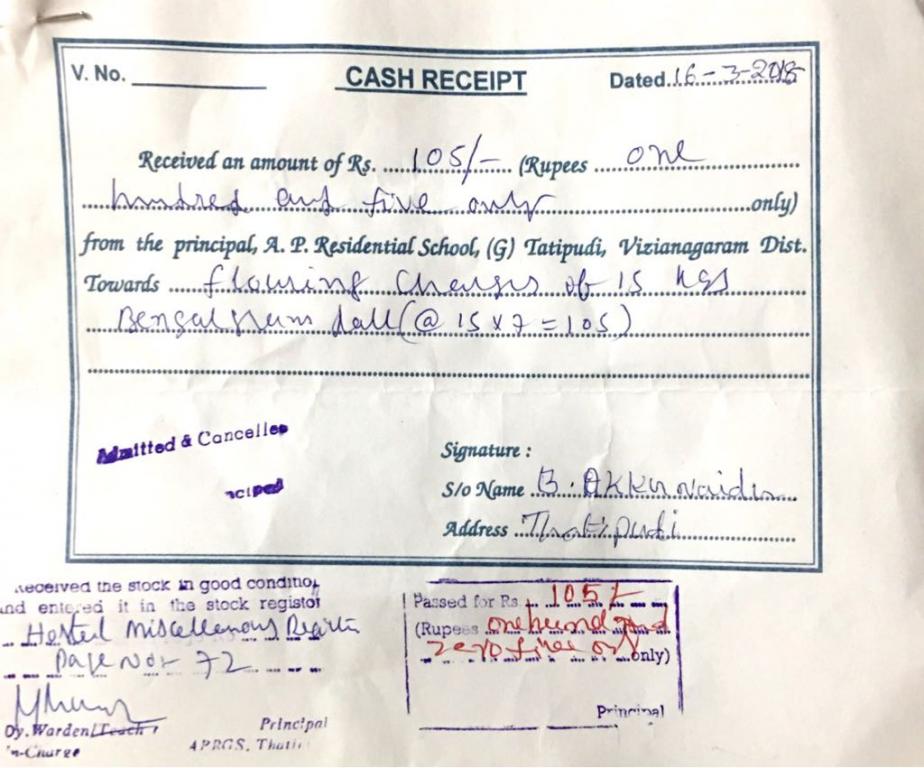 V. No. CASH RECEIPT Dated 16-3-2018
Received an amount of Rs. 105/- (Rupees one
hundred and five only only)
from the principal, A. P. Residential School, (G) Tatipudi, Vizianagaram Dist.
Towards flouring charges of 15 kgs
Bengal gram dall (@ 15 x 7 = 105)
Admitted & Cancelled
Signature :
S/o Name B. Akku naidu
Address Thatipudi
Received the stock in good condition
and entered it in the stock register
Page No: 72
Dy. Warden/Teach
In-Charge
Principal
APRGS, Thati
Passed for Rs. 105/-
(Rupees one hund and
zero five only only)
Principal